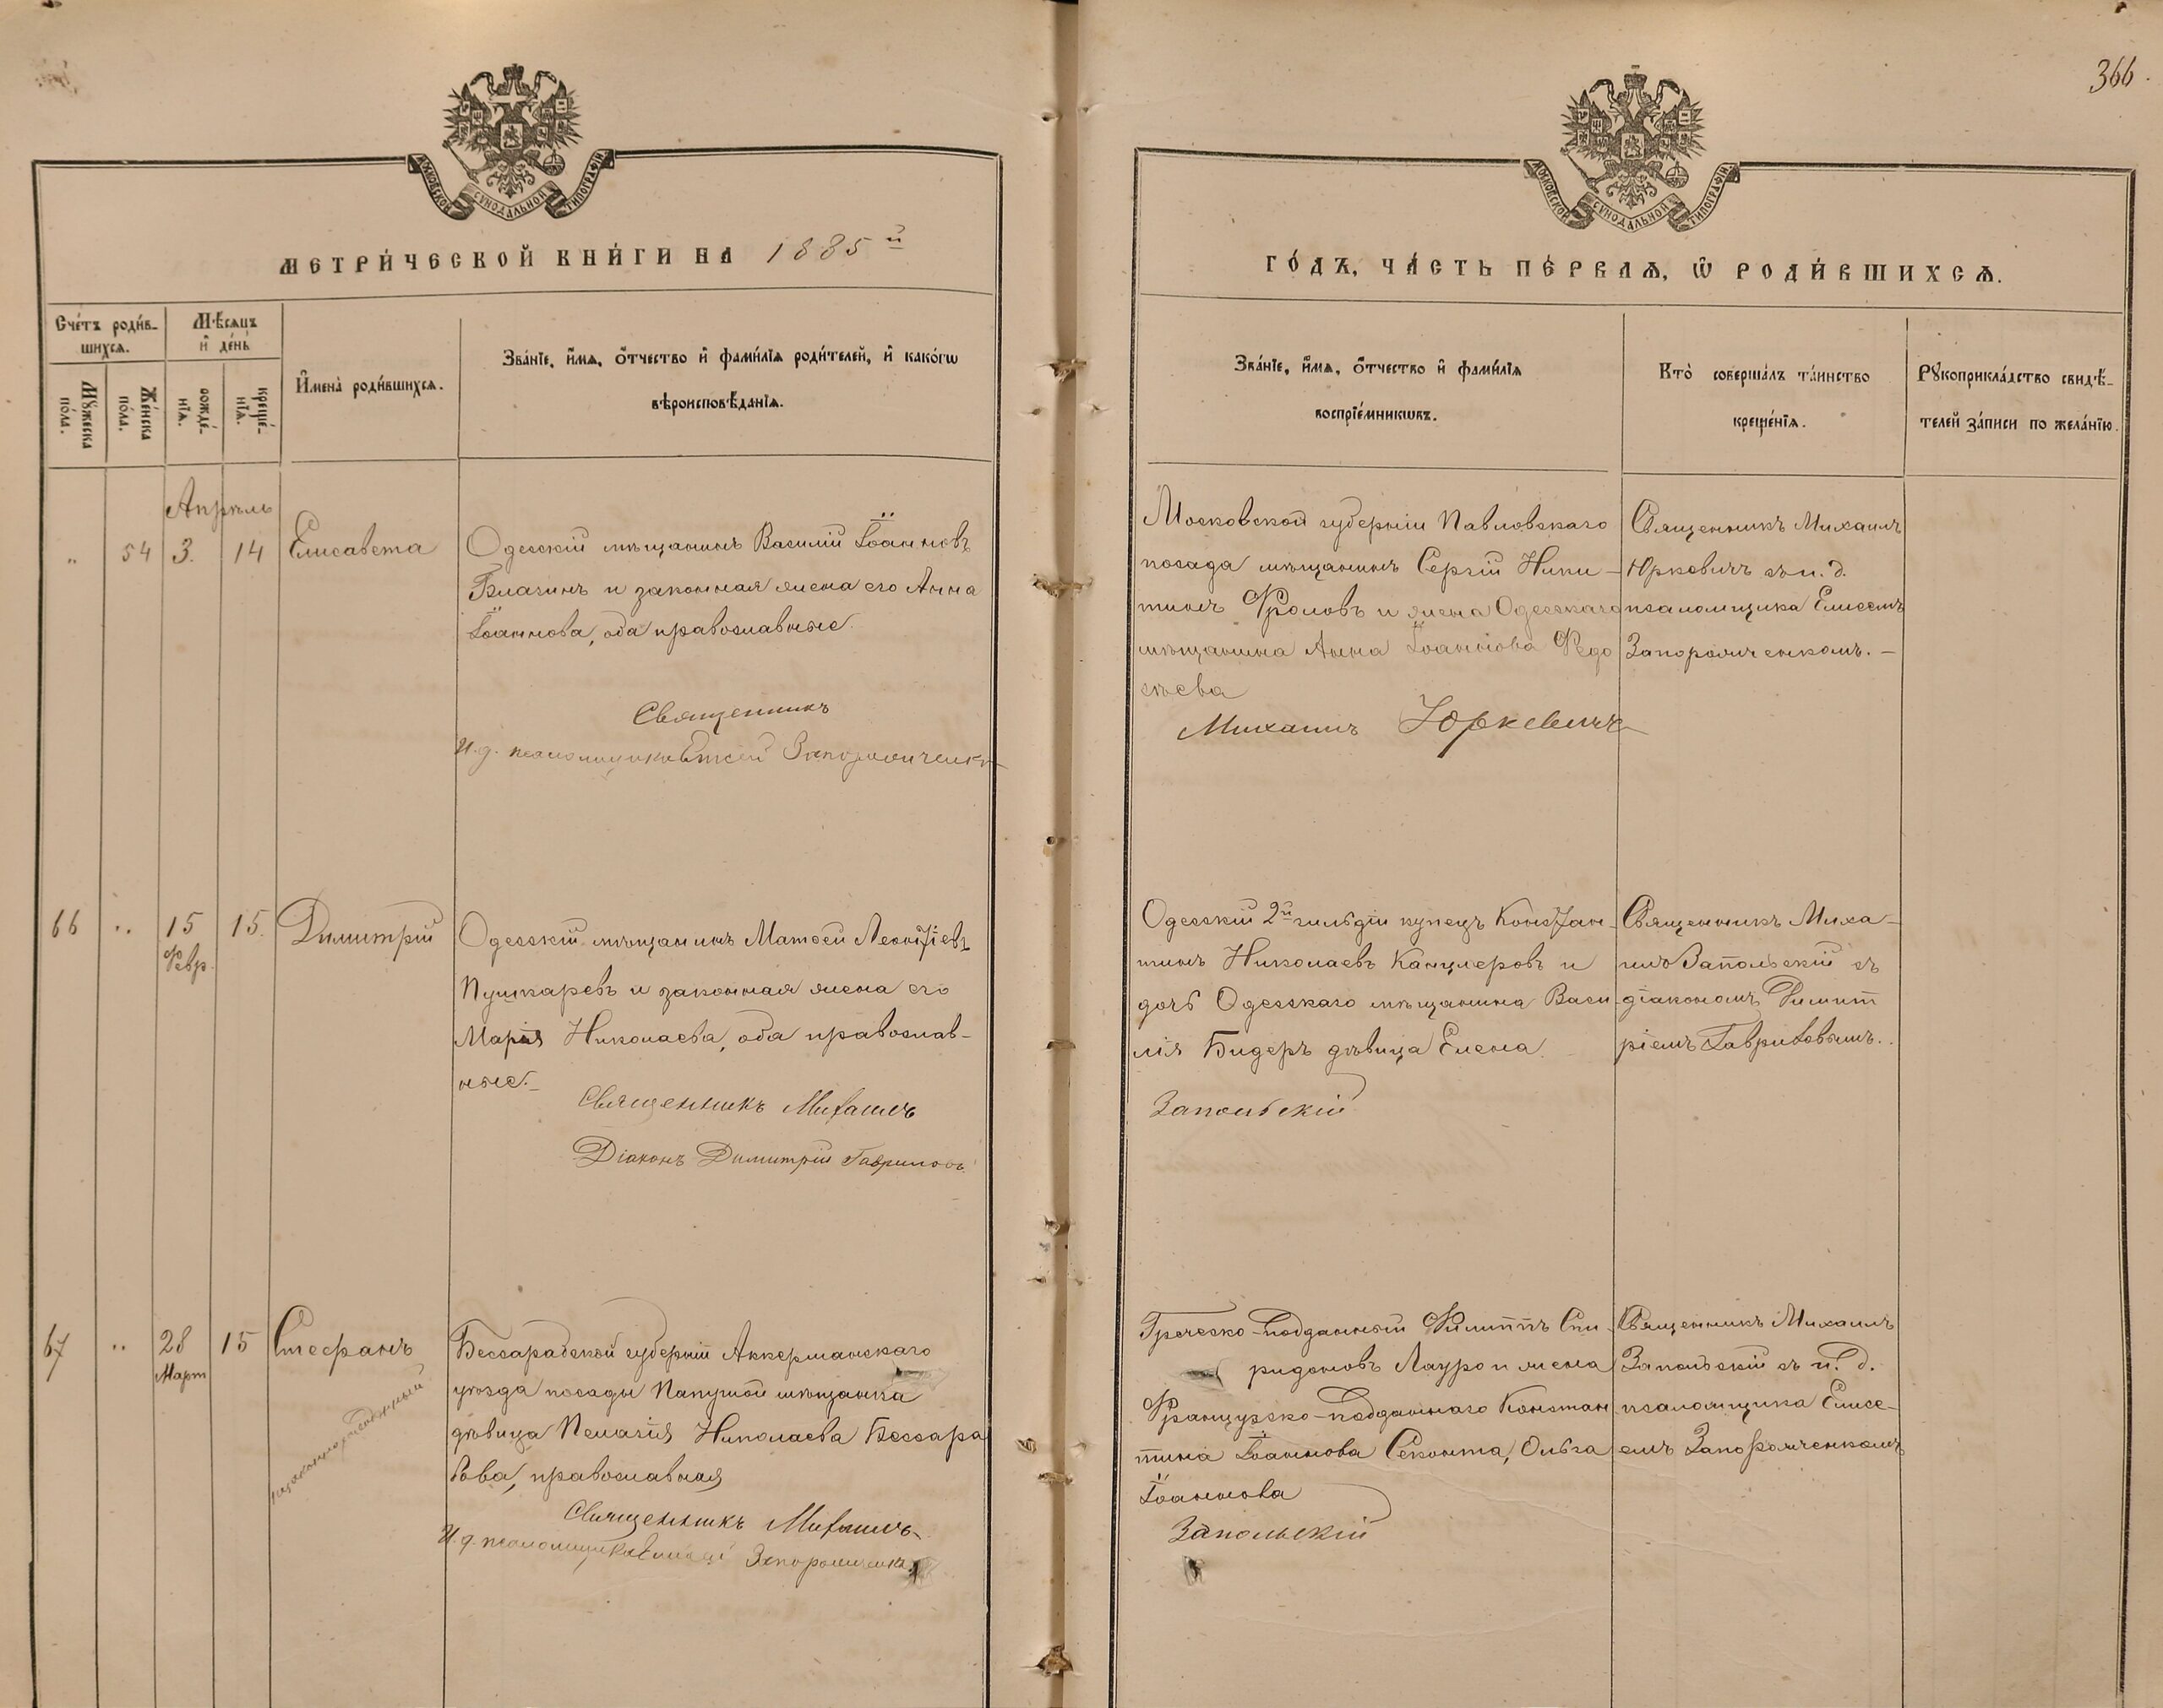 366.
МОСКОВСКОЙ СѴНОДАЛЬНОЙ ТИПОГРАФІИ
МОСКОВСКОЙ СѴНОДАЛЬНОЙ ТИПОГРАФІИ
МЕТРИ́ЧЕСКОЙ КНИ́ГИ НА 1885й
ГО́ДЪ, ЧА́СТЬ ПЕ́РВАѦ, Ѽ РОДИ́ВШИХСѦ.
Сче́тъ роди́в-
шихсѧ.
Мꙋ́жеска
по́ла.
Же́нска
по́ла.
Мѣ́сѧцъ
и҆ де́нь
рожде́-
нїѧ.
креще́-
нїѧ.
И҆мена̀ роди́вшихсѧ.
Зва́нїе, и҆́мѧ, ѻ҆́тчество и҆ фами́лїѧ роди́телей, и҆ како́гѡ
вѣроисповѣ́данїѧ.
Зва́нїе, и҆́мѧ, ѻ҆́тчество и҆ фами́лїѧ
воспрїе́мникѡвъ.
Кто̀ соверша́лъ та́инство
креще́нїѧ.
Рꙋкоприкла́дство свидѣ́-
телей за́писи по жела́нїю.
Апрѣль
" 54 3. 14 Елисавета
Одесскій мѣщанинъ Василій Іоанновъ
и законная жена его Анна
Іоаннова, оба православные.
Священникъ
И. д. псаломщика Елисей Запорожченко
Московской губерніи Павловскаго
посада мѣщанинъ Сергій Ники-
тинъ Фроловъ и жена Одесскаго
мѣщанина Анна Іоаннова Федо
сѣева
Михаилъ Юркевичъ
Священникъ Михаилъ
Юркевичъ съ и. д.
псаломщика Елисеемъ
Запорожченкомъ. –
66 " 15 15. Димитрій
Февр.
Одесскій мѣщанинъ Матѳей Леонтіевъ
Пушкаревъ и законная жена его
Марія Николаева, оба православ-
ные. –
Священникъ Михаилъ
Діаконъ Димитрій Гавриловъ
Одесскій 2й гильдіи купецъ Констан-
тинъ Николаевъ Канцлеровъ и
дочь Одесскаго мѣщанина Васи-
лія Бидеръ дѣвица Елена.
Запольскій
Священникъ Миха-
илъ Запольскій съ
діакономъ Димит
ріемъ Гавриловымъ.
67 " 28 15 Стефанъ
Март
незаконнорожденный
Бессарабской губерніи Аккерманскаго
уѣзда посады Папушой мѣщанка
дѣвица Пелагія Николаева Бессара
бова, православная
Священникъ Михаилъ
И. д. псаломщика Елисей Запорожченко
Греческо-подданный Филиппъ Спи-
ридоновъ Лауро и жена
Французско-подданнаго Констан
тина Іоаннова Секонта, Ольга
Іоаннова
Запольскій
Священникъ Михаилъ
Запольскій съ и. д.
псаломщика Елисе-
емъ Запорожченкомъ